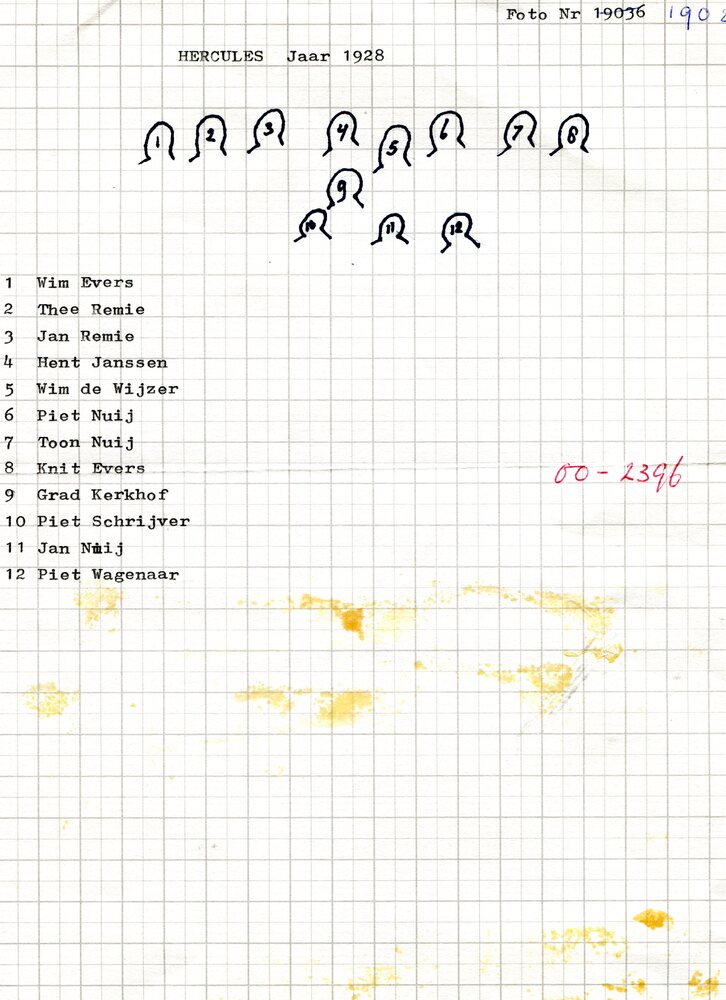 Foto Nr 19036 190
HERCULES Jaar 1928
1 2 3 4 5 6 7 8
9
10 11 12
1 Wim Evers
2 Thee Remie
3 Jan Remie
4 Hent Janssen
5 Wim de Wijzer
6 Piet Nuij
7 Toon Nuij
8 Knit Evers
00-2396
9 Grad Kerkhof
10 Piet Schrijver
11 Jan Nuij
12 Piet Wagenaar